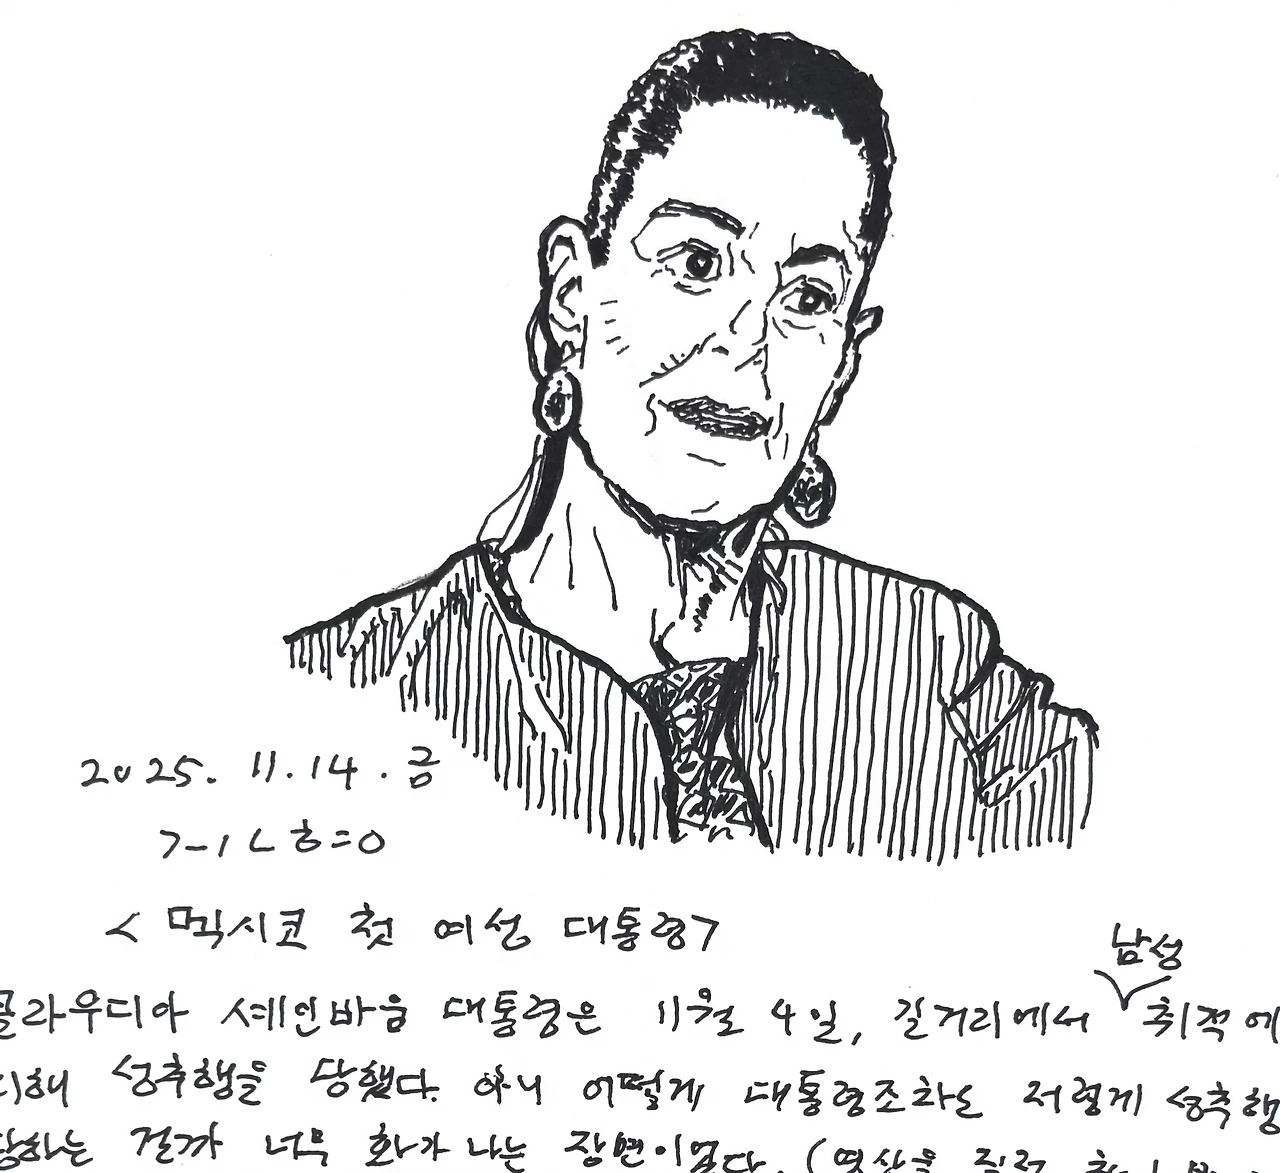 2025. 11. 14. 금
<멕시코 첫 여성 대통령>
남성
클라우디아 셰인바움 대통령은 11월 4일, 길거리에서 취객에
의해 성추행을 당했다. 아니 어떻게 대통령조차도 저렇게 성추행
당하는 걸까 너무 화가 나는 장면이었다. (영상을 직접